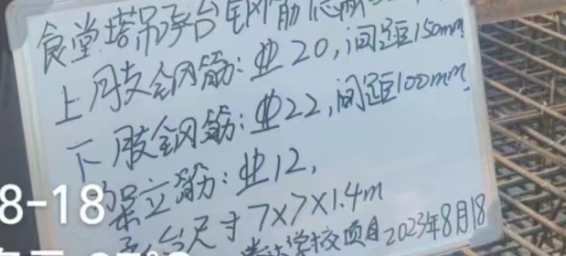 食堂塔吊承台钢筋
上肢钢筋：业20，间距150mm
下肢钢筋：业22，间距100mm
架立筋：业12，
承台尺寸7×7×1.4m
学校项目2023年8月18
8-18